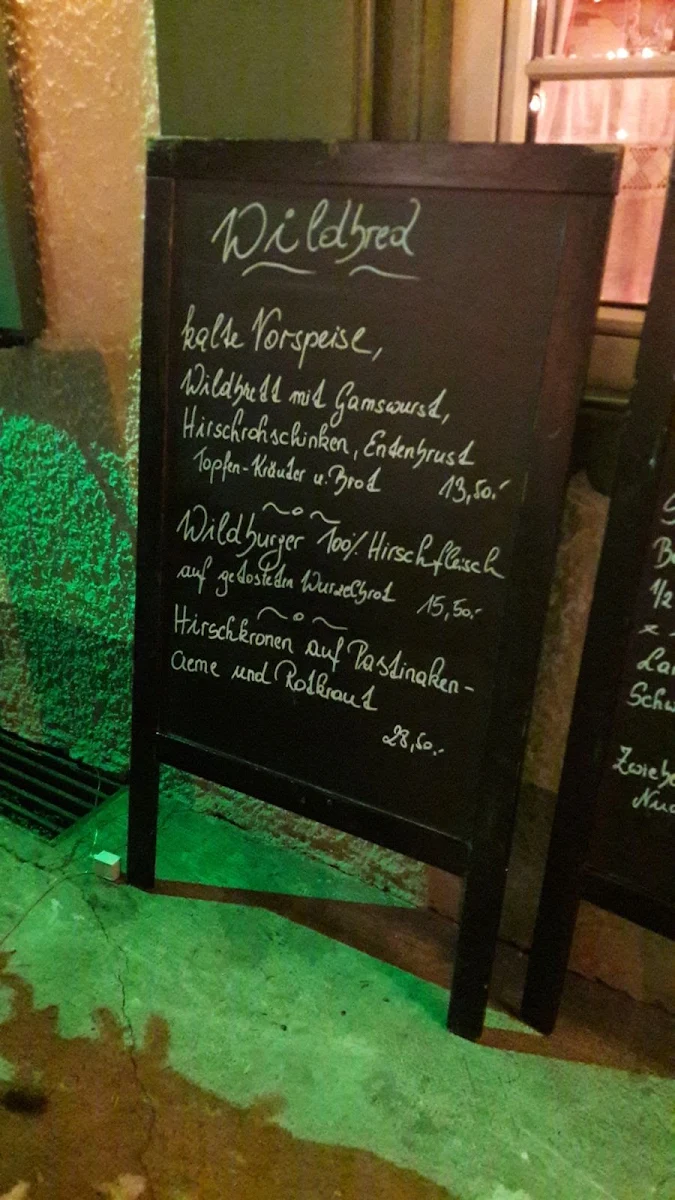 Wildbred
kalte Vorspeise,
Wildbrett mit Gamswurst,
Hirschrohschinken, Entenbrust
Topfen-Kräuter u. Brot 13,50.-
Wildburger 100% Hirschfleisch
auf getosteden Wurzelbrot 15,50.-
Hirschkronen auf Pastinaken-
creme und Rotkraut
28,50.-
1/2